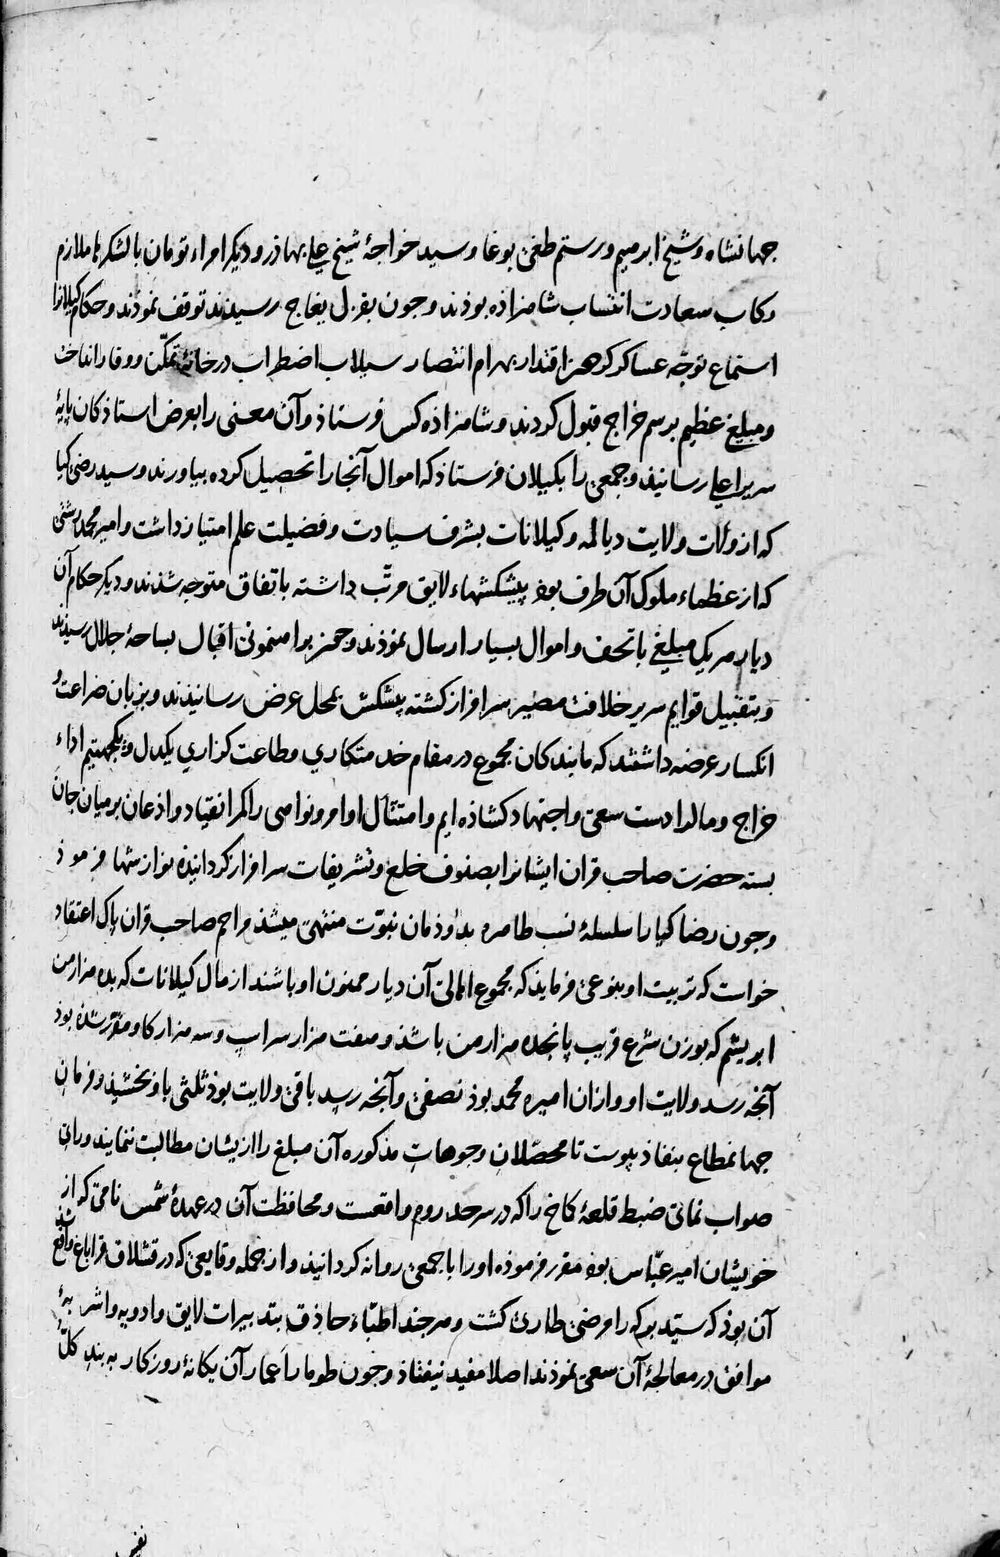 جهانشاه و شیخ ابرهیم و رستم طغی بوغا و سید خواجهٔ شیخ علی بهاذر و دیکر امراء تومان با لشکرها ملازم
رکاب سعادت انتساب شاهزاذه بوذند و جون بقزل یغاج رسیدند توقف نموذند و حکام کیلانرا
استماع توجّه عساکر کردهز اقتدار بهرام انتصار سیلاب اضطراب در خانهٔ تمکّن و وقار انداخت
و مبلغ عظیم برسم خراج قبول کردند و شاهزاذه کس فرستاذ و آن معنی را بعرض استاذکان پایهٔ
سریر اعلی رسانیذ و جمعی را بکیلان فرستاذ که اموال آنجا را تحصیل کرده بیاورند و سید رضی کیا
که از ولات ولایت دیالمه و کیلانات بشرف سیادت و فضیلت علم امتیاز داشت و امیر محمد رشتی
که از عظماء ملوک آن طرف بوذ پیشکشهاء لایق مرتّب داشته باتفاق متوجه شذند و دیکر حکام آن
دیار هریک مبلغی با تحف و اموال بسیار ارسال نموذند و جون برهنمونی اقبال بساحهٔ جلال رسیذند
و بتقبیل قوایم سریر خلافت مصیر سرافراز کشته پیشکش بمحل عرض رسانیذند و بزبان ضراعت و
انکسار عرضه داشتند که ما بندکان مجموع در مقام خدمتکاری و طاعت کزاری یکدل و یکجهتیم اداء
خراج و مال را دست سعی و اجتهاد کشاذه ایم و امتثال اوامر و نواهی را کمر انقیاد و اذعان بر میان جان
بسته حضرت صاحب قران ایشانرا بصنوف خلع و تشریفات سرافراز کردانیذه نوازشها فرموذ
و جون رضا کیا را سلسلهٔ نسب طاهره بدوذمان نبوّت منتهی میشذ مراحم صاحب قران پاک اعتقاد
خواست که تربیت او بنوعی فرمایذ که مجموع اهالی آن دیار ممنون او باشند از مال کیلانات که بده هزار من
ابریشم که بوزن شرع قریب پانجده هزار من باشذ و هفت هزار سر اسپ و سه هزار کاو مقرر شذه بوذ
آنجه رسد ولایت او و ازان امیره محمد بوذ نصفی و آنجه رسد باقی ولایت بوذ ثلثی باو بخشیذ و فرمان
جهانمطاع بنفاذ پیوست تا محصّلان وجوهات مذکوره آن مبلغ را ازیشان مطالبت ننمایند و رای
صواب نمائی ضبط قلعهٔ کماخ را که در سرحد روم واقعست و محافظت آن در عهدهٔ شمس نامی که از
خویشان امیر عبّاس بوذ مقرر فرموذه او را با جمعی روانه کردانیذ و از جمله وقایعی که در قشلاق قراباغ واقع شذ
آن بوذ که سیّد برکه را مرضی طاری کشت و هر جند اطبّاء حاذق بتدبیرات لایق و ادویه و اشربهٔ
موافق در معالجهٔ آن سعی نموذند اصلا مفید نیفتاذ و جون طومار اعمار آن یکانهٔ روزکار به بند کلّ
نفس